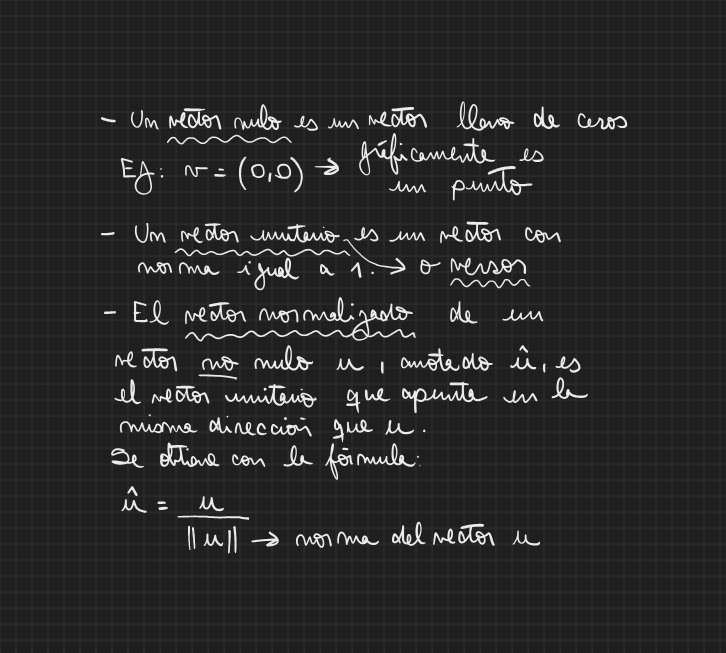 - Un vector nulo es un vector lleno de ceros
Ej: v = (0,0) → gráficamente es
un punto
- Un vector unitario es un vector con
norma igual a 1. → o versor
- El vector normalizado de un
vector no nulo u, anotado û, es
el vector unitario que apunta en la
misma dirección que u.
Se obtiene con la fórmula:
û = u
||u|| → norma del vector u